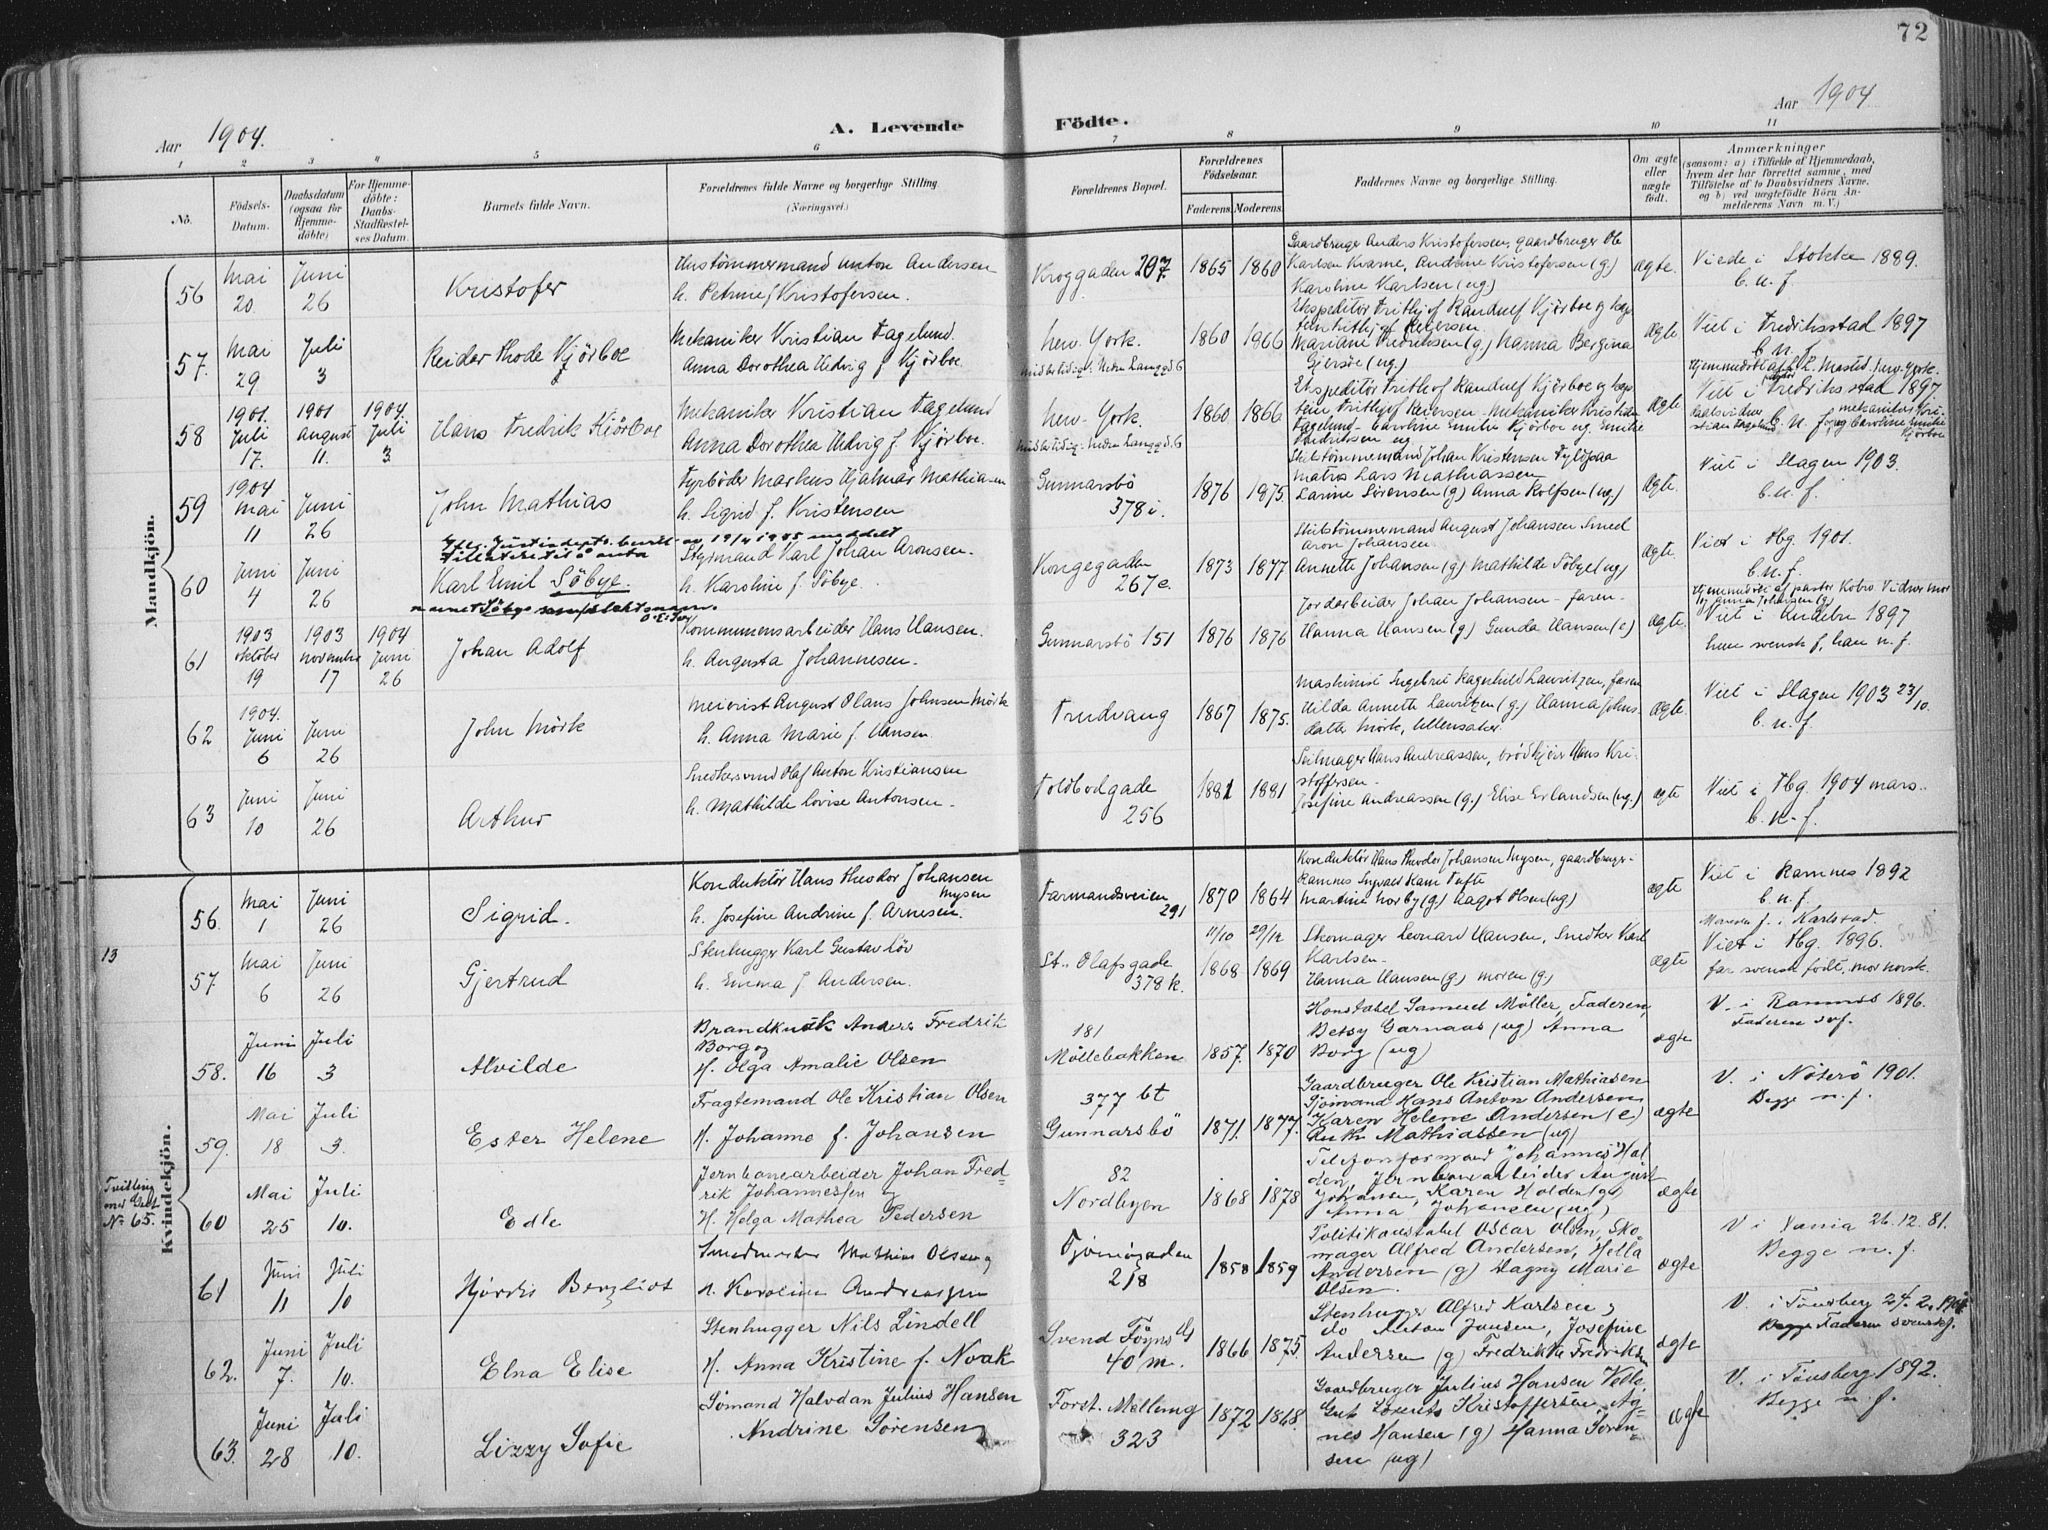 72
Aar 1904.
A. Levende Födte.
Aar 1904
1 2 3 4 5 6 7 8 9 10 11
No.
Födsels-Datum.
Daabsdatum (ogsaa for Hjemme-döbte)
For Hjemme-döbte: Daabs-Stadfæstel-ses Datum.
Barnets fulde Navn.
Forældrenes fulde Navne og borgerlige Stilling. (Næringsvei.)
Forældrenes Bopæl.
Forældrenes Födselsaar.
Faderens. Moderens.
Faddernes Navne og borgerlige Stilling.
Om ægte eller uægte födt.
Anmærkninger
(saasom: a) i Tilfælde af Hjemmedaab, hvem der har forrettet samme, med Tilföielse af to Daabsvidners Navne. og b) ved uægtefödte Börn An-melderens Navn m. V.)
Mandkjön.
56 Mai 20. Juni 26 Kristofer
Hustömmermand Anton Andersen
h. Petrine f Kristofersen.
Kroggaden 297. 1865 1860
Gaardbruger Anders Kristofersen, gaardbruger Ole
Karlsen Kvarne, Andrine Kristofersen (g)
Karoline Karlsen (ug)
ægte.
Viede i Stokke 1889.
b. n. f.
57. Mai 29 Juli 3 Reidar Thode Kjörboe
Mekaniker Kristian Fagelund.
Anna Dorothea Hedvig f Kjörboe.
New. York.
midlertidig: Nedre Langgd. 6
1860 1866
Ekspeditör Frithjof Randulf Kjörboe og kap
tein Frithjof Reiersen.
Mariane Fredriksen (g) Hanna Bergina
Gjersöe (ug)
ægte
Viet i Fredriksstad 1897
b. n. f.
58 1901. Juli 17. 1901 August 11. 1904. Juli 3. Hans Fredrik Kiörboe
Mekaniker Kristian Fagelund
Anna Dorothea Hedvig f. Kjörboe.
New. York.
midlertidig. Nedre Langgd. 6
1860 1866
Ekspeditör Frithof Randulf Kjörboe og kap
tein Frithjof Reiersen - Mekaniker Kristian
Fagelund - Caroline Emilie Kjörboe ug. Emilie
Fredriksen ug
ægte
Hjemmedöbt af pastor L. Mosted. New. York.
Viet i Fredriksstad 1897.
Daabsvidner mekaniker Kri-
stian Fagelund b. n. f. og Caroline Emilie
Kjörboe
59 1904 Mai 11 Juni 26 John Mathias
Fyrböder Markus Hjalmar Mathiasen
h. Sigrid f. Kristensen
Gunnarsbö
378 i.
1876 1875.
Skibstömmermand Johan Kristensen
Matros Lars Mathiassen
Larine Sörensen (g) Anna Rolfsen (ug)
ægte.
Viet i Slagen 1903.
b. n. f.
60 Juni 4 Juni 26
Karl Emil Söbye.
Styrmand Karl Johan Aronsen.
h. Karoline f. Söbye.
Kongegaden
267 e.
1873 1877
Skibstömmermand August Johansen Smed
Aron Johansen
Annette Johansen (g) Mathilde Söbye (ug)
ægte.
Viet i Tbg 1901.
b. n. f.
61 1903 oktober 19 1903 november 17 1904 Juni 26 Johan Adolf
Kommunearbeider Hans Hansen.
h. Augusta Johannesen.
Gunnarsbö 151 1876 1876
Jordarbeider Johan Johansen - faren -
Hanna Hansen (g) Gunda Hansen (e)
ægte.
Hjemmedöbt af pastor Kobro Vidner mor
og Anna Johansen (g)
Viet i Andebu 1897
hun svensk f, han n. f.
62 1904. Juni 6 Juni 26 John Mörk
Meierist August Olaus Johnsen Mörk
h. Anna Marie f. Hansen.
Trudvang 1867 1875.
Maskinist Ingebret Ragnhild Lauritzen, faren
Hilda Annette Lauritzen (g.) Hanna Johns
datter Mörk, Ullensaker.
ægte.
Viet i Slagen 1903 23/10.
b. n. f.
63 Juni 10 Juni 26 Arthur
Snedkersvend Olaf Anton Kristiansen
h. Mathilde Lovise Antonsen.
Toldbodgade
256
1881 1881
Seilmager Hans Andreassen, brödkjörer Hans Kri-
stoffersen -
Josefine Andreassen (g.) Elise Erlandsen (ug.)
ægte
Viet i Tbg. 1904 mars.
b. n. f.
Kvindekjön.
56. Mai 1 Juni 26 Sigrid.
Konduktör Hans Theodor Johansen
Mysen
h. Josefine Andrine f. Arnesen.
Farmandsveien
291
1870 1864
Konduktör Hans Theodor Johansen Mysen, gaardbruger
Ramnes Ingvald Ram Tufte
Martine Norby (g) Aagot Olsen (ug)
ægte
Viet i Ramnes 1892
b. n. f.
13
57 Mai 6 Juni 26 Gjertrud
Stenhugger Karl Gustav Löv
h. Emma f Andersen.
St. Olafsgade
378 k.
11/10 1868 29/12 1869
Skomager Leonard Hansen, Snedker Karl
Karlsen -
Hanna Hansen (g) moren (g)
ægte
i Karlstad.
Viet i Tbg. 1896.
far svensk född, mor norsk.
58. Juni 16 Juli 3 Alvilde
Brandkusk Anders Fredrik
Borg og
H. Olga Amalie Olsen
181
Möllebakken 1857. 1870
Konstabel Samuel Möller, Faderen,
Betsy Garnaas (ug) Anna
Borg (ug)
ægte
V. i Ramnes 1896.
Faderen svf.
59. Mai 18 Juli 3. Ester Helene
Fragtemand Ole Kristian Olsen
H. Johanne f. Johansen
377 bt
Gunnarsbö 1871. 1877.
Gaardbruger Ole Kristian Mathiasen
Sjömand Hans Anton Andersen
Karen Helene Andersen (e)
Ruth Mathiassen (ug)
ægte
V. i Nöterö 1901.
Begge n. f.
Tvilling
med Gut
No 65.
60 Mai 25 Juli 10. Edle
Jernbanearbeider Johan Fred-
rik Johannessen og
H. Helga Mathea Pedersen
82
Nordbyen 1868 1878
Telefonformand Johannes Hal
den, Jernbanearbeider August
Johansen, Karen Holden (g)
Anna Johansen (ug)
ægte
61 Juni 11 Juli 10 Hjördis Bergliot
Smedmester Mathias Olsen og
H. Karoline Andreassen
Tjömögaden
218
1858 1859
Politikonstabel Oscar Olsen, Sko-
mager Alfred Andersen, Hella
Andersen (g) Dagny Marie
Olsen.
ægte
V i Xania 26.12.81.
Begge n. f.
62. Juni 7. Juli 10. Elna Elise
Stenhugger Nils Lindell
H. Anna Kristine f. Noak
Svend Föyns Gt
40 m.
1866 1875.
Stenhugger Alfred Karlsen,
do Anton Jansen, Josefine
Andersen (g) Fredrikke Fredriksen
ægte
V. i Tönsberg 24.2.
Begge Faderen svenskf.
63. Juni 28 Juli 10. Lizzy Sofie
Sömand Halvdan Julius Hansen
Andrine Sörensen
Forst. Mellemg
323
1872 1868.
Gaardbruger Julius Hansen Velle,
Gut Lourits Kristoffersen, Ag-
nes Hansen (g) Hanna Sören-
sen (ug)
ægte
V. i Tönsberg 1892.
Begge n. f.